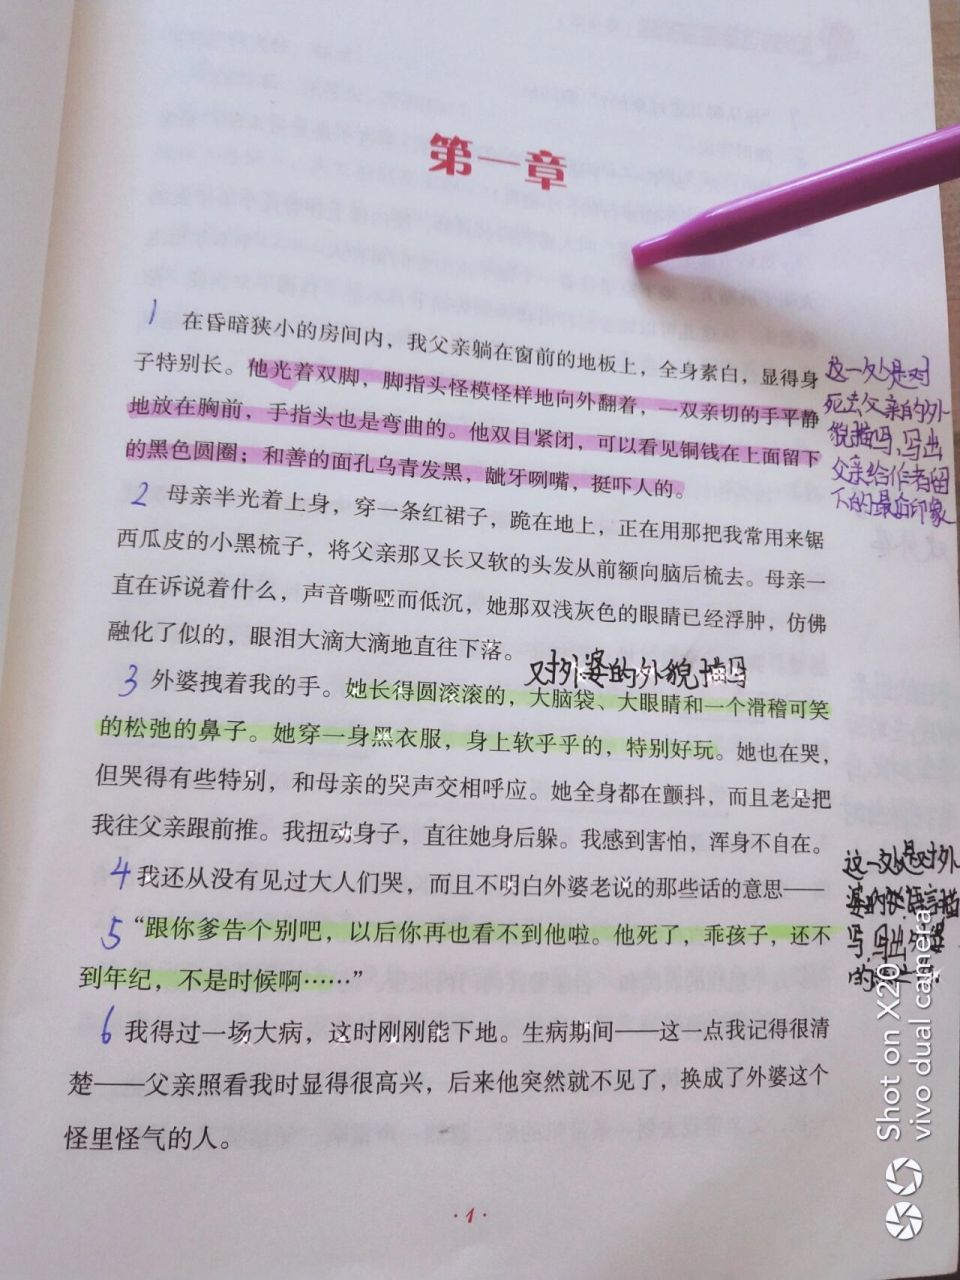 第一章
1 在昏暗狭小的房间内，我父亲躺在窗前的地板上，全身素白，显得身
子特别长。他光着双脚，脚指头怪模怪样地向外翻着，一双亲切的手平静
地放在胸前，手指头也是弯曲的。他双目紧闭，可以看见铜钱在上面留下
的黑色圆圈；和善的面孔乌青发黑，龇牙咧嘴，挺吓人的。
这一处是对
死去父亲的外
貌描写，写出
父亲给作者留
下的最后印象
2 母亲半光着上身，穿一条红裙子，跪在地上，正在用那把我常用来锯
西瓜皮的小黑梳子，将父亲那又长又软的头发从前额向脑后梳去。母亲一
直在诉说着什么，声音嘶哑而低沉，她那双浅灰色的眼睛已经浮肿，仿佛
融化了似的，眼泪大滴大滴地直往下落。
对外婆的外貌描写
3 外婆拽着我的手。她长得圆滚滚的，大脑袋、大眼睛和一个滑稽可笑
的松弛的鼻子。她穿一身黑衣服，身上软乎乎的，特别好玩。她也在哭，
但哭得有些特别，和母亲的哭声交相呼应。她全身都在颤抖，而且老是把
我往父亲跟前推。我扭动身子，直往她身后躲。我感到害怕，浑身不自在。
4 我还从没有见过大人们哭，而且不明白外婆老说的那些话的意思——
5 “跟你爹告个别吧，以后你再也看不到他啦。他死了，乖孩子，还不
到年纪，不是时候啊……”
这一处是对外
婆的语言描
写，写出外婆
的
6 我得过一场大病，这时刚刚能下地。生病期间——这一点我记得很清
楚——父亲照看我时显得很高兴，后来他突然就不见了，换成了外婆这个
怪里怪气的人。
·1·
Shot on X20
vivo dual camera